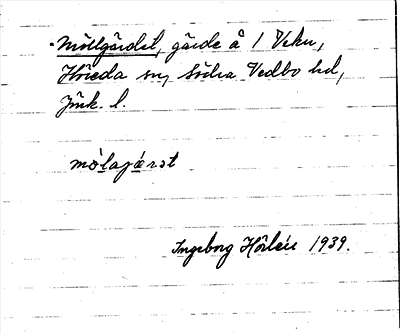 Möllgärdet, gärde å 1 Veku,
Höreda sn, Södra Vedbo hd,
Jönk. l.
mòlajæ̀rət
Ingeborg Hörlén 1939.